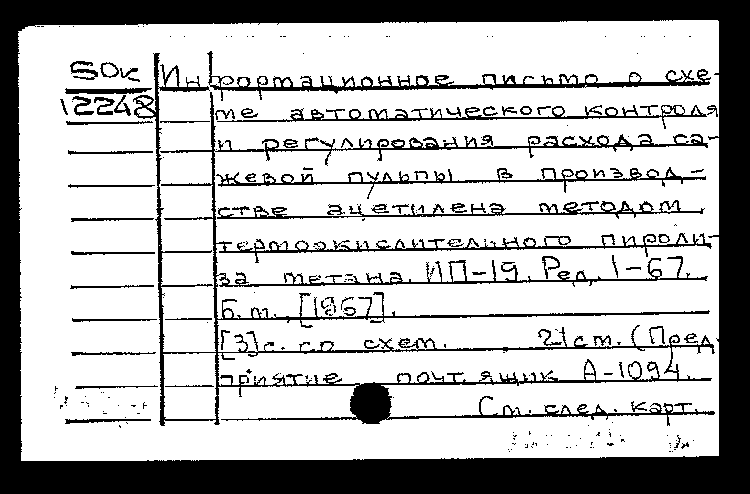 50к Информационное письмо о схе-
12248 ме автоматического контроля
и регулирования расхода са-
жевой пульпы в производ-
стве ацетилена методом
термоокислительного пироли-
за метана. ИП-19. Ред. 1-67.
Б.м., [1967].
[3]с. со схем. 21см. (Пред-
приятие почт. ящик А-1094.
См. след. карт.